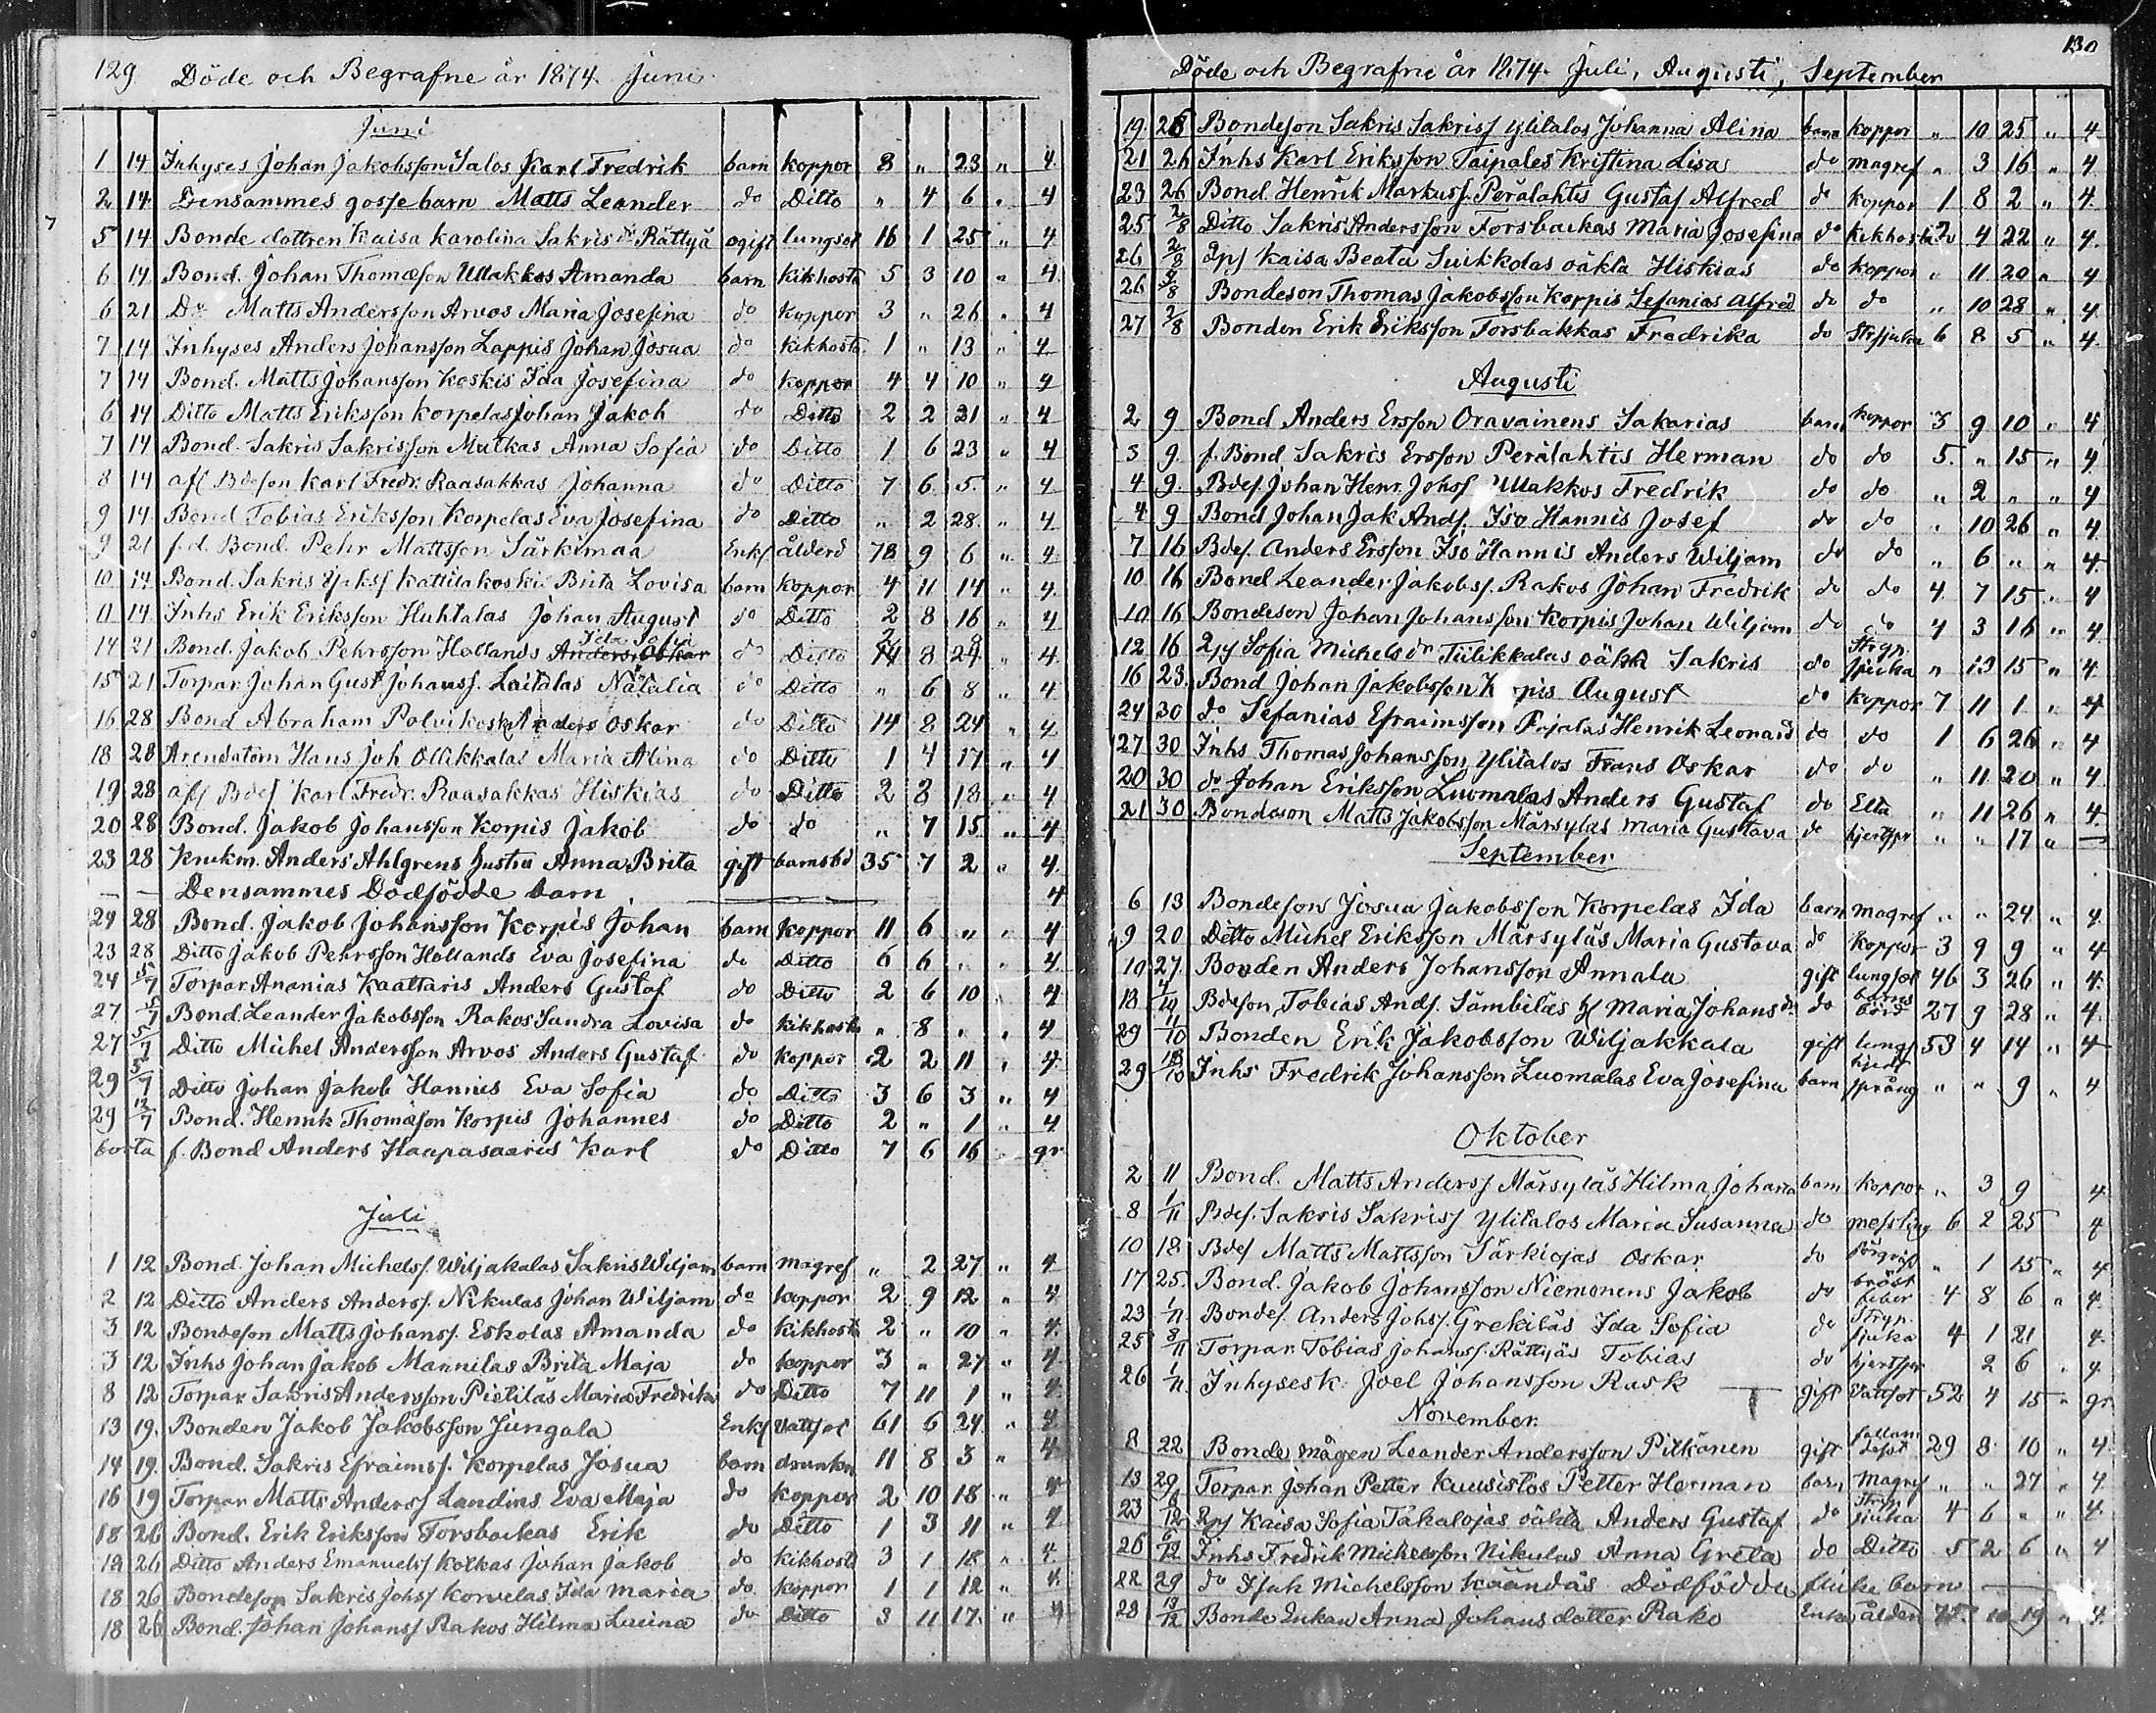 129. Döde och Begrafne år 1874. Juni.
Juni
1 14 Inhyses Johan Jakobsson Salos Karl Fredrik barn koppor 8 „ 23 „ 4
2 14 Densammes gossebarn Matts Leander do Ditto „ 4 6 „ 4
5 14 Bonde dottren Kaisa Karolina Sakris dr Rättyä ogift lungsot 16 1 25 „ 4
6 14 Bond. Johan Thomasson Ullakkos Amanda barn Kikhosta 5 3 10 „ 4
6 21 Do Matts Andersson Arvos Maria Josefina do koppor 3 „ 26 „ 4
7 14 Inhyses Anders Johansson Lappis Johan Josua do kikhosta 1 „ 13 „ 4
7 14 Bond. Matts Johansson Koskis Ida Josefina do koppor 4 4 10 „ 4
6 14 Ditto Matts Eriksson Korpelas Johan Jakob do Ditto 2 2 21 „ 4
7 14 Bond. Sakris Sakrisson Mutkas Anna Sofia do Ditto 1 6 23 „ 4
8 14 afl Bdeson Karl Fredr. Raasakkas Johanna do Ditto 7 6 5 „ 4
9 14 Bond Tobias Eriksson Korpelas Eva Josefina do Ditto „ 2 28 „ 4
9 21 f.d. Bond. Pehr Mattsson Särkimaa Enkl ålderd 78 9 6 „ 4
10 14 Bond. Sakris Kattilakoski Brita Lovisa barn koppor 4 11 14 „ 4
11 14 Inhs Erik Eriksson Huhtalas Johan August do Ditto 2 8 16 „ 4
14 21 Bond. Jakob Pehrsson Hollands Anders Oskar Ida Sofia do Ditto 8 „ 4
15 21 Torpar. Johan Gust Johanss. Laitalas Natalia do Ditto „ 6 8 „ 4
16 28 Bond Abraham Polvikoski Anders Oskar do Ditto 14 8 24 „ 4
18 28 Arendatorn Hans Joh Ollikkalas Maria Alina do Ditto 1 4 17 „ 4
19 28 afl Bdes Karl Fredr. Raasakkas Hiskias do Ditto 2 8 18 „ 4
20 28 Bond. Jakob Johansson Korpis Jakob do do „ 7 15 „ 4
23 28 Krukm. Anders Ahlgrens hustru Anna Brita gift barnsbd 35 7 2 „ 4
— — Densammes Dödfödde barn 4
24 28 Bond. Jakob Johansson Korpis Johan barn koppor 11 6 „ „ 4
23 28 Ditto Jakob Pehrsson Hollands Eva Josefina do Ditto 6 6 „ „ 4
24 5/7 Torpar Ananias Kaattaris Anders Gustaf do Ditto 2 6 10 „ 4
27 5/7 Bond. Leander Jakobsson Rakos Sandra Lovisa do kikhosta „ 8 „ „ 4
27 5/7 Ditto Michel Andersson Arvos Anders Gustaf do koppor 2 2 11 „ 4
29 5/7 Ditto Johan Jakob Hannis Eva Sofia do Ditto 3 6 3 „ 4
29 12/7 Bond. Henrik Thomasson Korpis Johannes do Ditto 2 „ 1 „ 4
borta f. Bond Anders Haapasaaris Karl do Ditto 7 6 16 „ gr
Juli
1 12 Bond. Johan Michelss. Wiljakalas Sakris Wiljam barn magref „ 2 27 „ 4
2 12 Ditto Anders Anderss. Nikulas Johan Wiljam do koppor 2 9 12 „ 4
3 12 Bondeson Matts Johanss. Eskolas Amanda do kikhosta 2 „ 10 „ 4
3 12 Inhs Johan Jakob Mannilas Brita Maja do koppor 3 „ 27 „ 4
8 12 Torpar Sakris Andersson Pietiläs Maria Fredrika do Ditto 7 11 1 „ 4
13 19. Bonden Jakob Jakobsson Jungala Enkl Vattsot 61 6 24 „ 4
14 19. Bond. Sakris Efraimss. Korpelas Josua barn drunkn 11 8 3 „ 4
16 19 Torpar Matts Anderss Landins Eva Maja do koppor 2 10 18 „ 4
18 26 Bond. Erik Eriksson Forsbackas Erik do Ditto 1 3 11 „ 4
19 26 Ditto Anders Emanuelss Kotkas Johan Jakob do kikhosta 3 1 18 „ 4
18 26 Bondeson Sakris Johss Korvelas Ida Maria do koppor 1 1 12 „ 4
18 26 Bond. Johan Johanss Rakos Hilma do Ditto 3 11 17 „ 4
130
Döde och Begrafne år 1874. Juli, Augusti, September
19. 26 Bondeson Sakris Sakriss Ylitalos Johanna Alina barn koppor „ 10 25 „ 4
21 26 Inhs Karl Eriksson Taipales Kristina Lisa do magref „ 3 16 „ 4
23 26 Bond. Henrik Markuss. Perälahtis Gustaf Alfred do koppor 1 8 2 „ 4
25 2/8 Ditto Sakris Andersson Forsbackas Maria Josefina do kikhosta 2 4 22 „ 4.
26 2/8 Kaisa Beata Suikkolas oäkta Hiskias do koppor „ 11 20 „ 4
26 2/8 Bondeson Thomas Jakobsson Korpis Sefanias Alfred do do „ 10 28 „ 4
27 2/8 Bonden Erik Eriksson Forsbakkas Fredrika do Strsjuka 6 8 5 „ 4.
Augusti
2 9 Bond Anders Ersson Oravainens Sakarias barn koppor 3 9 10 „ 4
3 9. f. Bond Sakris Ersson Perälahtis Herman do do 5. „ 15 „ 4
4 9. Bdes. Johan Henr. Johss Ullakkos Fredrik do do „ 2 „ „ 4
4 9 Bond Johan Jak Ands. Iso Hannis Josef do do „ 10 26 „ 4
7 16 Bdes. Anders Ersson Iso Hannis Anders Wiljam do do „ 6 „ „ 4
10 16 Bond Leander Jakobss. Rakos Johan Fredrik do do 4 7 15 „ 4
10 16 Bondeson Johan Johansson Korpis Johan Wiljam do do 4 3 16 „ 4
12 16 Sofia Michels dr Tiilikkalas oäkta Sakris do Strgp. sjuka „ 13 15 „ 4
16 23. Bond Johan Jakobsson Korpis August do koppor 7 11 1 „ 4
24 30 do Sefanias Efraimsson Henrik Leonard do do 1 6 26 „ 4
27 30 Inhs Thomas Johansson Ylitalos Frans Oskar do do „ 11 20 „ 4
20 30 do Johan Eriksson Luomalas Anders Gustaf do Elta „ 11 26 „ 4
21 30 Bondeson Matts Jakobsson Märsyläs Maria Gustava do hjertspr „ „ 17 „ —
September
6 13 Bondeson Josua Jakobsson Korpelas Ida barn magref „ „ 24 „ 4
9 20 Ditto Michel Eriksson Märsyläs Maria Gustava do koppor 3 9 9 „ 4
10 27. Bonden Anders Johansson Annala gift lungsot 46 3 26 „ 4
18 4/10 Bdeson Tobias Ands. Sämbiläs h Maria Johans dr do barnsbörd 27 9 28 „ 4.
29 11/10 Bonden Erik Jakobsson Wiljakkala gift lungs 53 4 14 „ 4
29 18/10 Inhs Fredrik Johansson Luomalas Eva Josefina barn hjertsprång „ „ 9 „ 4
Oktober
2 11 Bond. Matts Anderss Märsyläs Hilma Johanna barn koppor „ 3 9 4
8 1/11 Bdes. Sakris Sakriss Ylitalos Maria Susanna do messling 6 2 25 4
10 18 Bdes Matts Mattsson Särkiojas Oskar do „ 1 15 „ 4
17 25. Bond. Jakob Johansson Niemonens Jakob do bröst feber 4 8 6 „ 4
23 1/11 Bondes. Anders Johss. Grekiläs Ida Sofia do Strgp. sjuka 4 1 21 4
25 8/11 Torpar. Tobias Johanss. Rättyäs Tobias do hjertspr 2 6 „ 4
26 1/11 Inhysesk. Joel Johansson Rusk gift Vattsot 52 4 15 „ gr
November
8 22 Bonde mågen Leander Andersson Pitkänen gift 29 8 10 „ 4
13 29 Torpar. Johan Petter Kuusistos Petter Herman barn Magref „ „ 27 „ 4
23 6/12 Kaisa Sofia Takalojas oäkta Anders Gustaf do Strp sjuka 4 6 „ „ 4
26 6/12 Inhs Fredrik Michelsson Nikulas Anna Greta do Ditto 5 2 6 „ 4
22 29 do Isak Michelsson Käändäs Dödfödda flicke barn
28 13/12 Bonde Enkan Anna Johans dotter Rako Enka ålderd 75 10 19 „ 4.